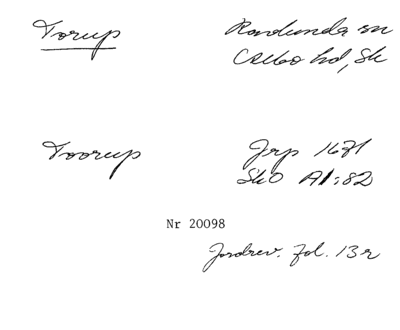 Torup
Ravlunda sn
Albo hd, Sk
Toorup
Jrp 1671
SkO A1:82
Nr 20098
Jordrev. fol. 13r